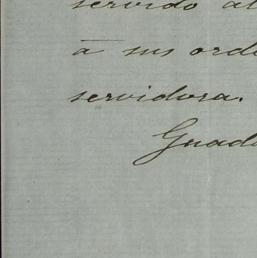 servido al
a sus orde
servidora.
Guada